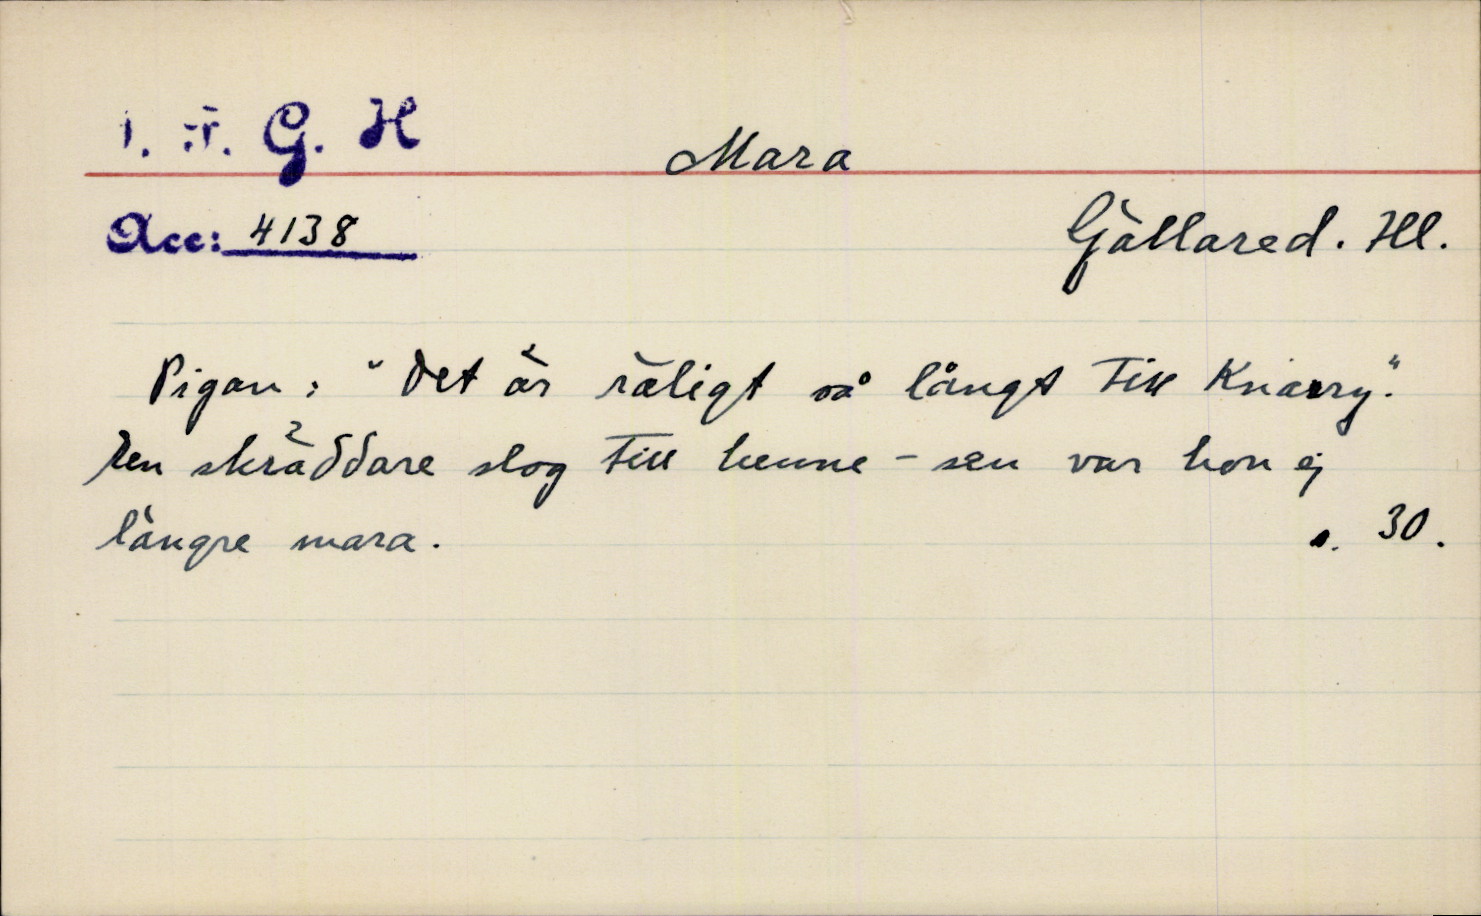 I. F. G. H
Mara
Acc: 4138
Gällared. Hl.
Pigan: "Det är räligt så långt till Knärry".
Den skräddare slog till henne - sen var hon ej
längre mara.
s. 30.